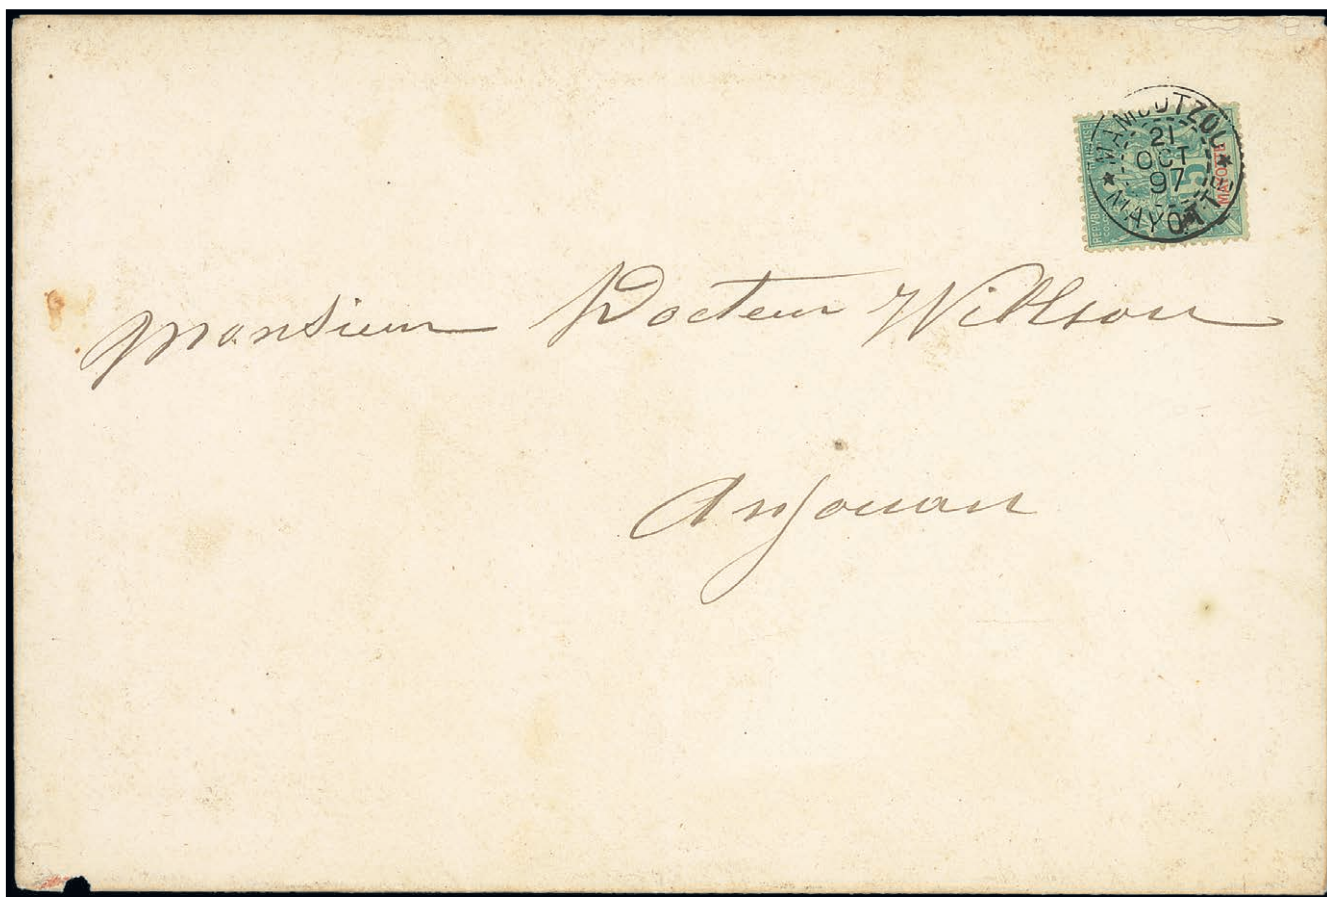 MAMOUTZOU
21
OCT
97
MAYOTTE
MAYOTTE
5
Monsieur Docteur Willson
Anjouan